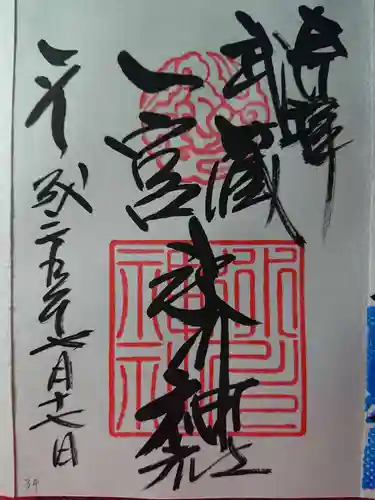 奉拝
武蔵
一宮
氷川神社
平成二十五年七月十七日
34